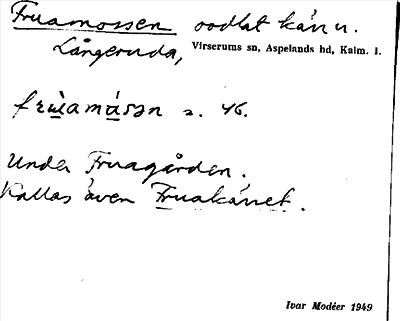 Fruamossen oodlat kärr.
Långeruda, Virserums sn, Aspelands hd, Kalm. l.
frùamásən s. 46.
Under Fruagården.
Kallas även Fruakärret.
Ivar Modéer 1949